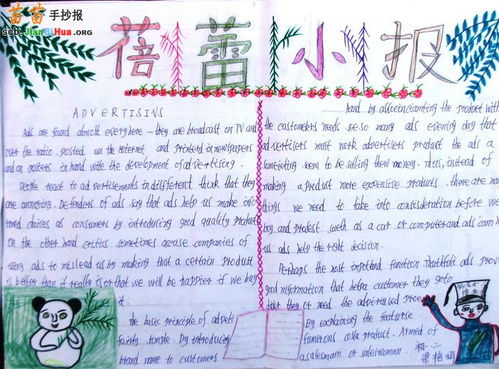 苗苗手抄报
scb.JianBiHua.ORG
蓓蕾小报
ADVERTISINS
Ads are found almost everywhere - they are broadcast on TV and
over the radio. posted on the internet and printed in newspapers
and on posters in hand with the development of advertising.
People react to advertisements in different think that they
are annoying. Defenders of ads say that ads help us make
choices as consumers by introducing good quality products
on the other hand critics sometimes accuse companies of
using ads to mislead us by making that a certain product
is better than it really is or that we will be happier if we buy
it.
The basic principle of
simple. By introducing
brand name to customers
And by the product with
the customers needs. we so many ads evening day that
advertisers must work advertisers product the ads a
sometimes seem to be selling them money. Thus, instead of
making a product more expensive products. there are
things we need to take into consideration before we
buy and product. such as a car or computer and ads can
us ads help the right decision.
Perhaps the most function that ads
good information that helps customer they go to
that they need the advertised
By explaining the
a product. Armed
as a salesman or saleswoman.